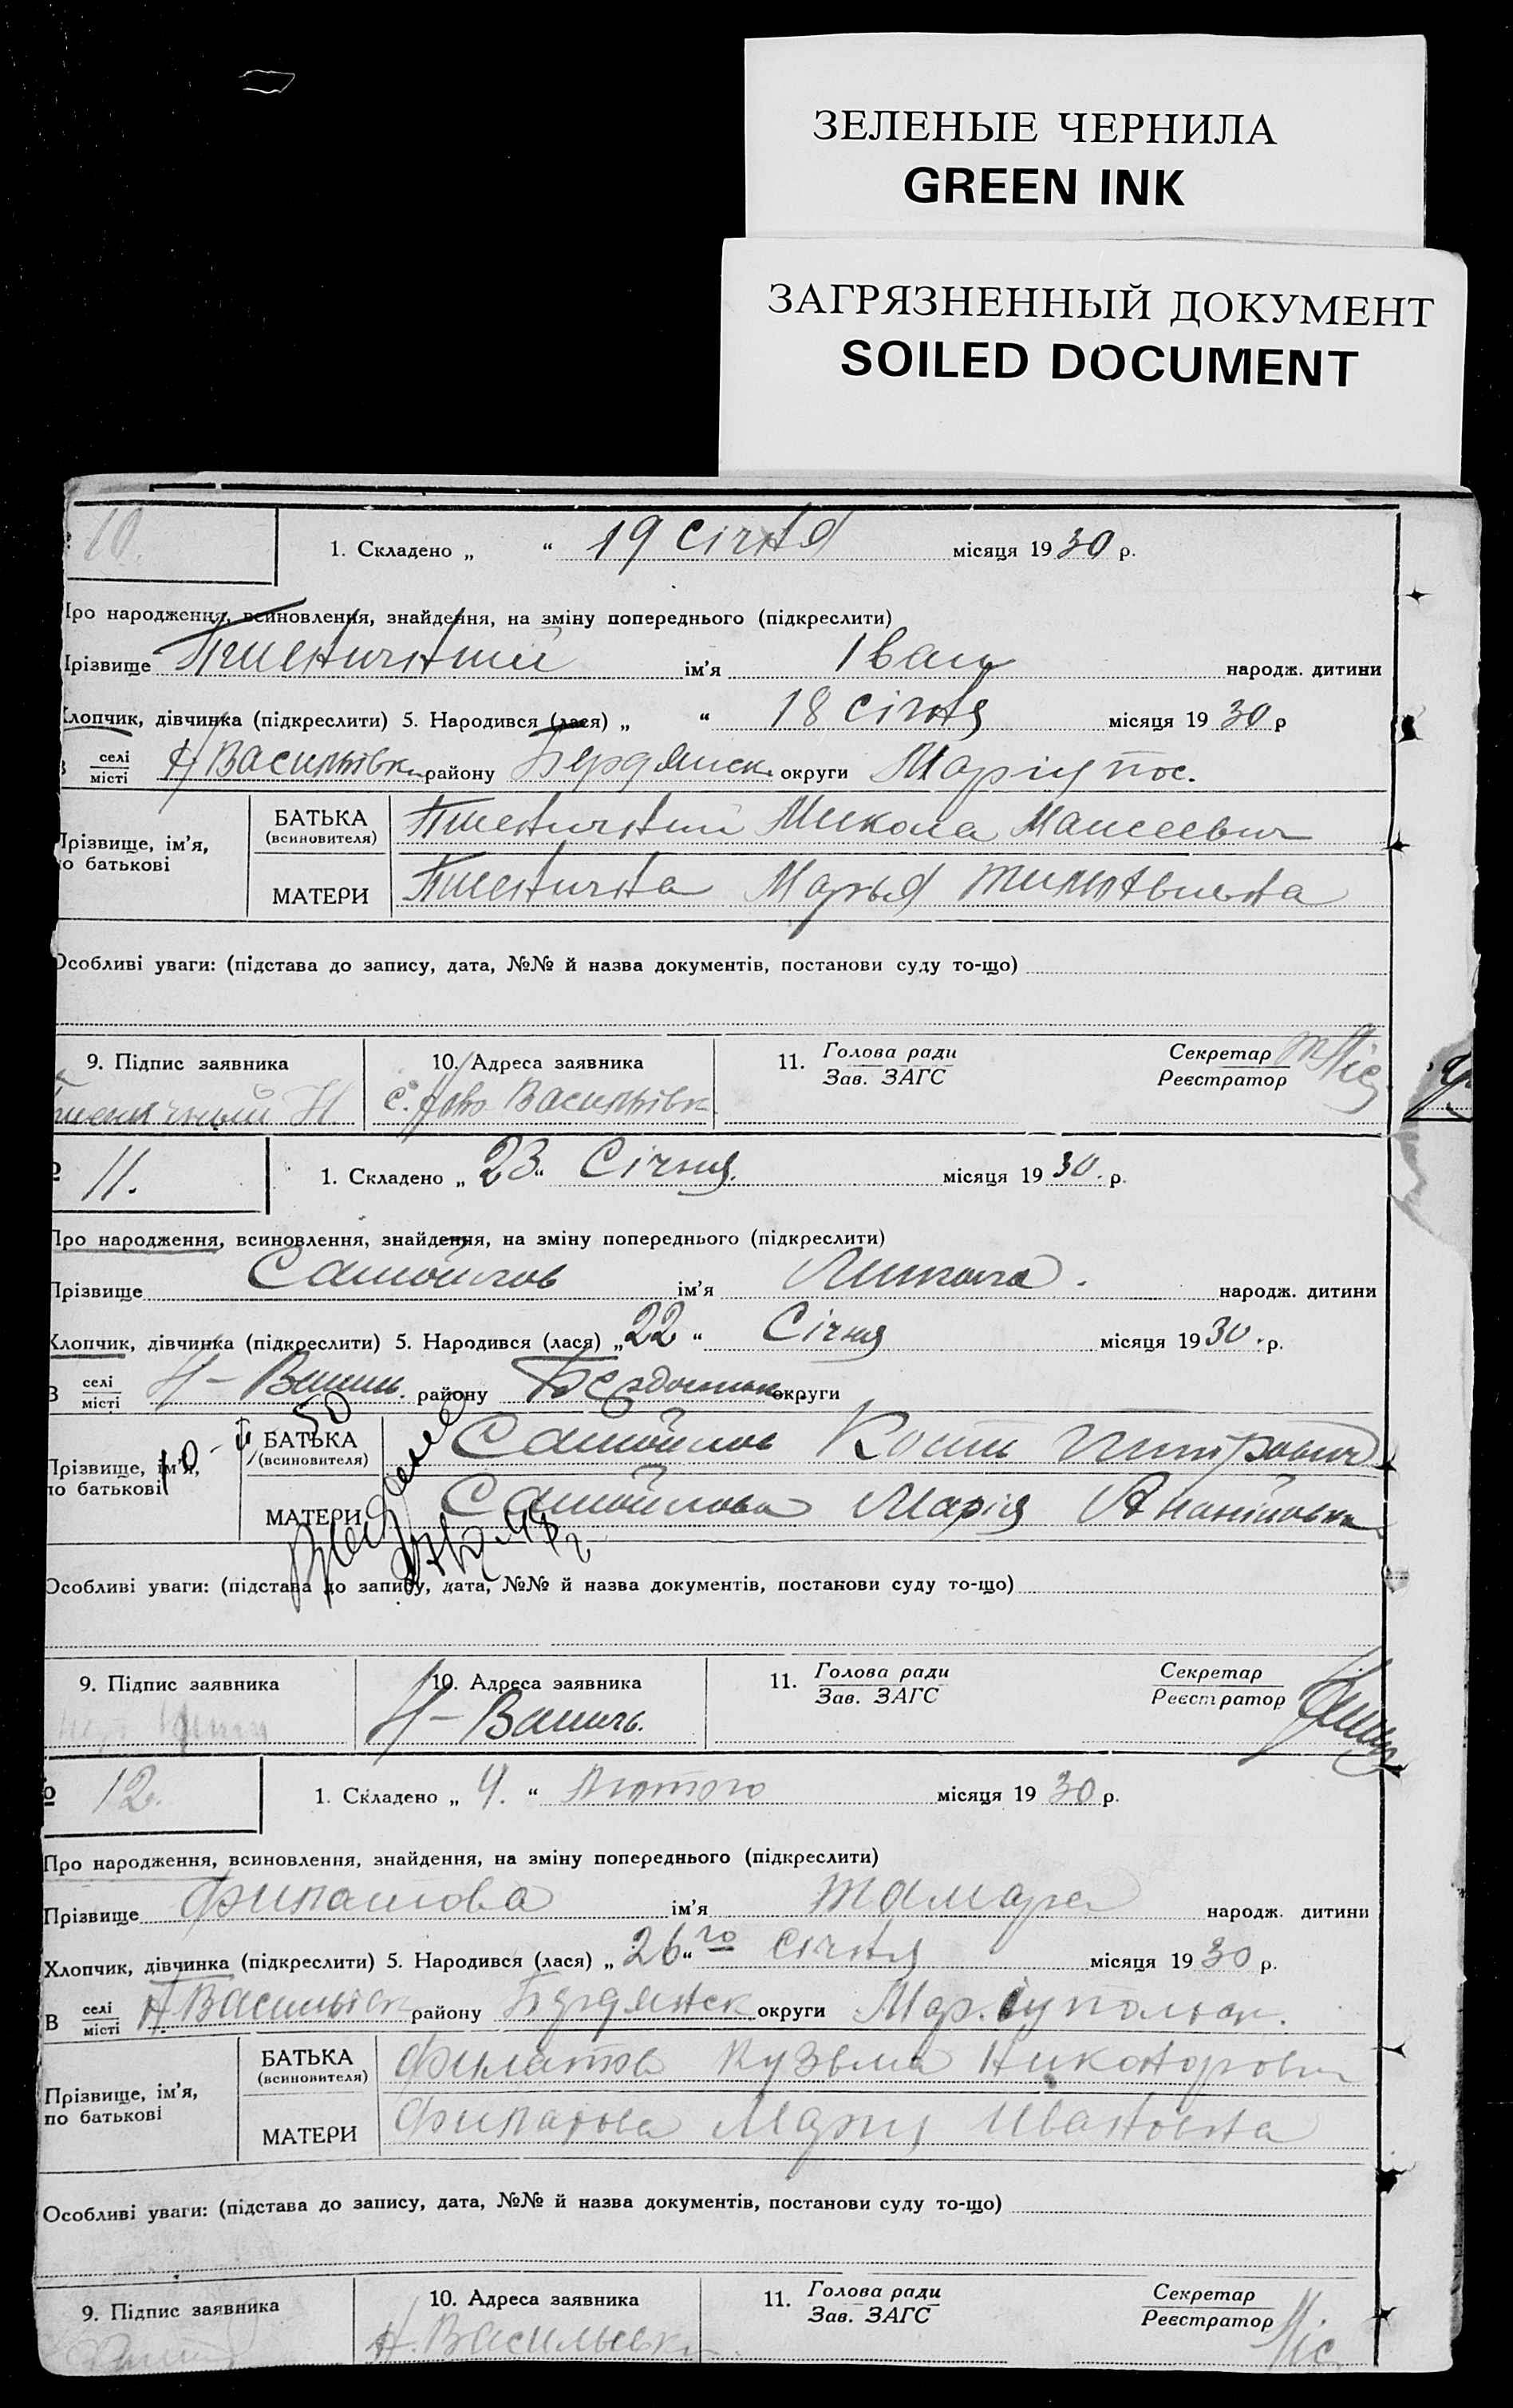 ЗЕЛЕНЫЕ ЧЕРНИЛА
GREEN INK
ЗАГРЯЗНЕННЫЙ ДОКУМЕНТ
SOILED DOCUMENT
10.
1. Складено „ “ 19 січня місяця 1930 р.
Про народження, всиновлення, знайдення, на зміну попереднього (підкреслити)
Прізвище Пшеничний ім'я Іван народж. дитини
Хлопчик, дівчинка (підкреслити) 5. Народився (лася) „ “ 18 січня місяця 1930 р
В селі/місті Н Васильівк району Бердянск округи Маріупос.
Прізвище, ім'я, по батькові
БАТЬКА (всиновителя) Пшеничний Микола Маисеевич
МАТЕРИ Пшенична Марья
Особливі уваги: (підстава до запису, дата, №№ й назва документів, постанови суду то-що)
9. Підпис заявника 10. Адреса заявника 11. Голова ради/Зав. ЗАГС Секретар/Реєстратор
Пшеничний Н. с. Ново Васильівк
№ 11. 1. Складено „ 23 “ Січня. місяця 1930. р.
Про народження, всиновлення, знайдення, на зміну попереднього (підкреслити)
Прізвище Самойлов ім'я народж. дитини
Хлопчик, дівчинка (підкреслити) 5. Народився (лася) „ 22 “ Січня місяця 1930. р.
В селі/місті Н – Василь. району округи
Прізвище, ім'я, по батькові
БАТЬКА (всиновителя) Самойлов Кость Питрович
МАТЕРИ Самойлова Марія
Особливі уваги: (підстава до запису, дата, №№ й назва документів, постанови суду то-що)
9. Підпис заявника 10. Адреса заявника 11. Голова ради/Зав. ЗАГС Секретар/Реєстратор
Н – Василь.
№ 12. 1. Складено „ 4. “ Лютого місяця 1930 р.
Про народження, всиновлення, знайдення, на зміну попереднього (підкреслити)
Прізвище Филатова ім'я Тамара народж. дитини
Хлопчик, дівчинка (підкреслити) 5. Народився (лася) „ 26 “ го січня місяця 1930 р.
В селі/місті Н. Васильівк району Бердянск округи Маріупольск.
Прізвище, ім'я, по батькові
БАТЬКА (всиновителя) Филатов Кузьма Никонорович
МАТЕРИ Филатова Мария Ивановна
Особливі уваги: (підстава до запису, дата, №№ й назва документів, постанови суду то-що)
9. Підпис заявника 10. Адреса заявника 11. Голова ради/Зав. ЗАГС Секретар/Реєстратор
Н. Васильевк